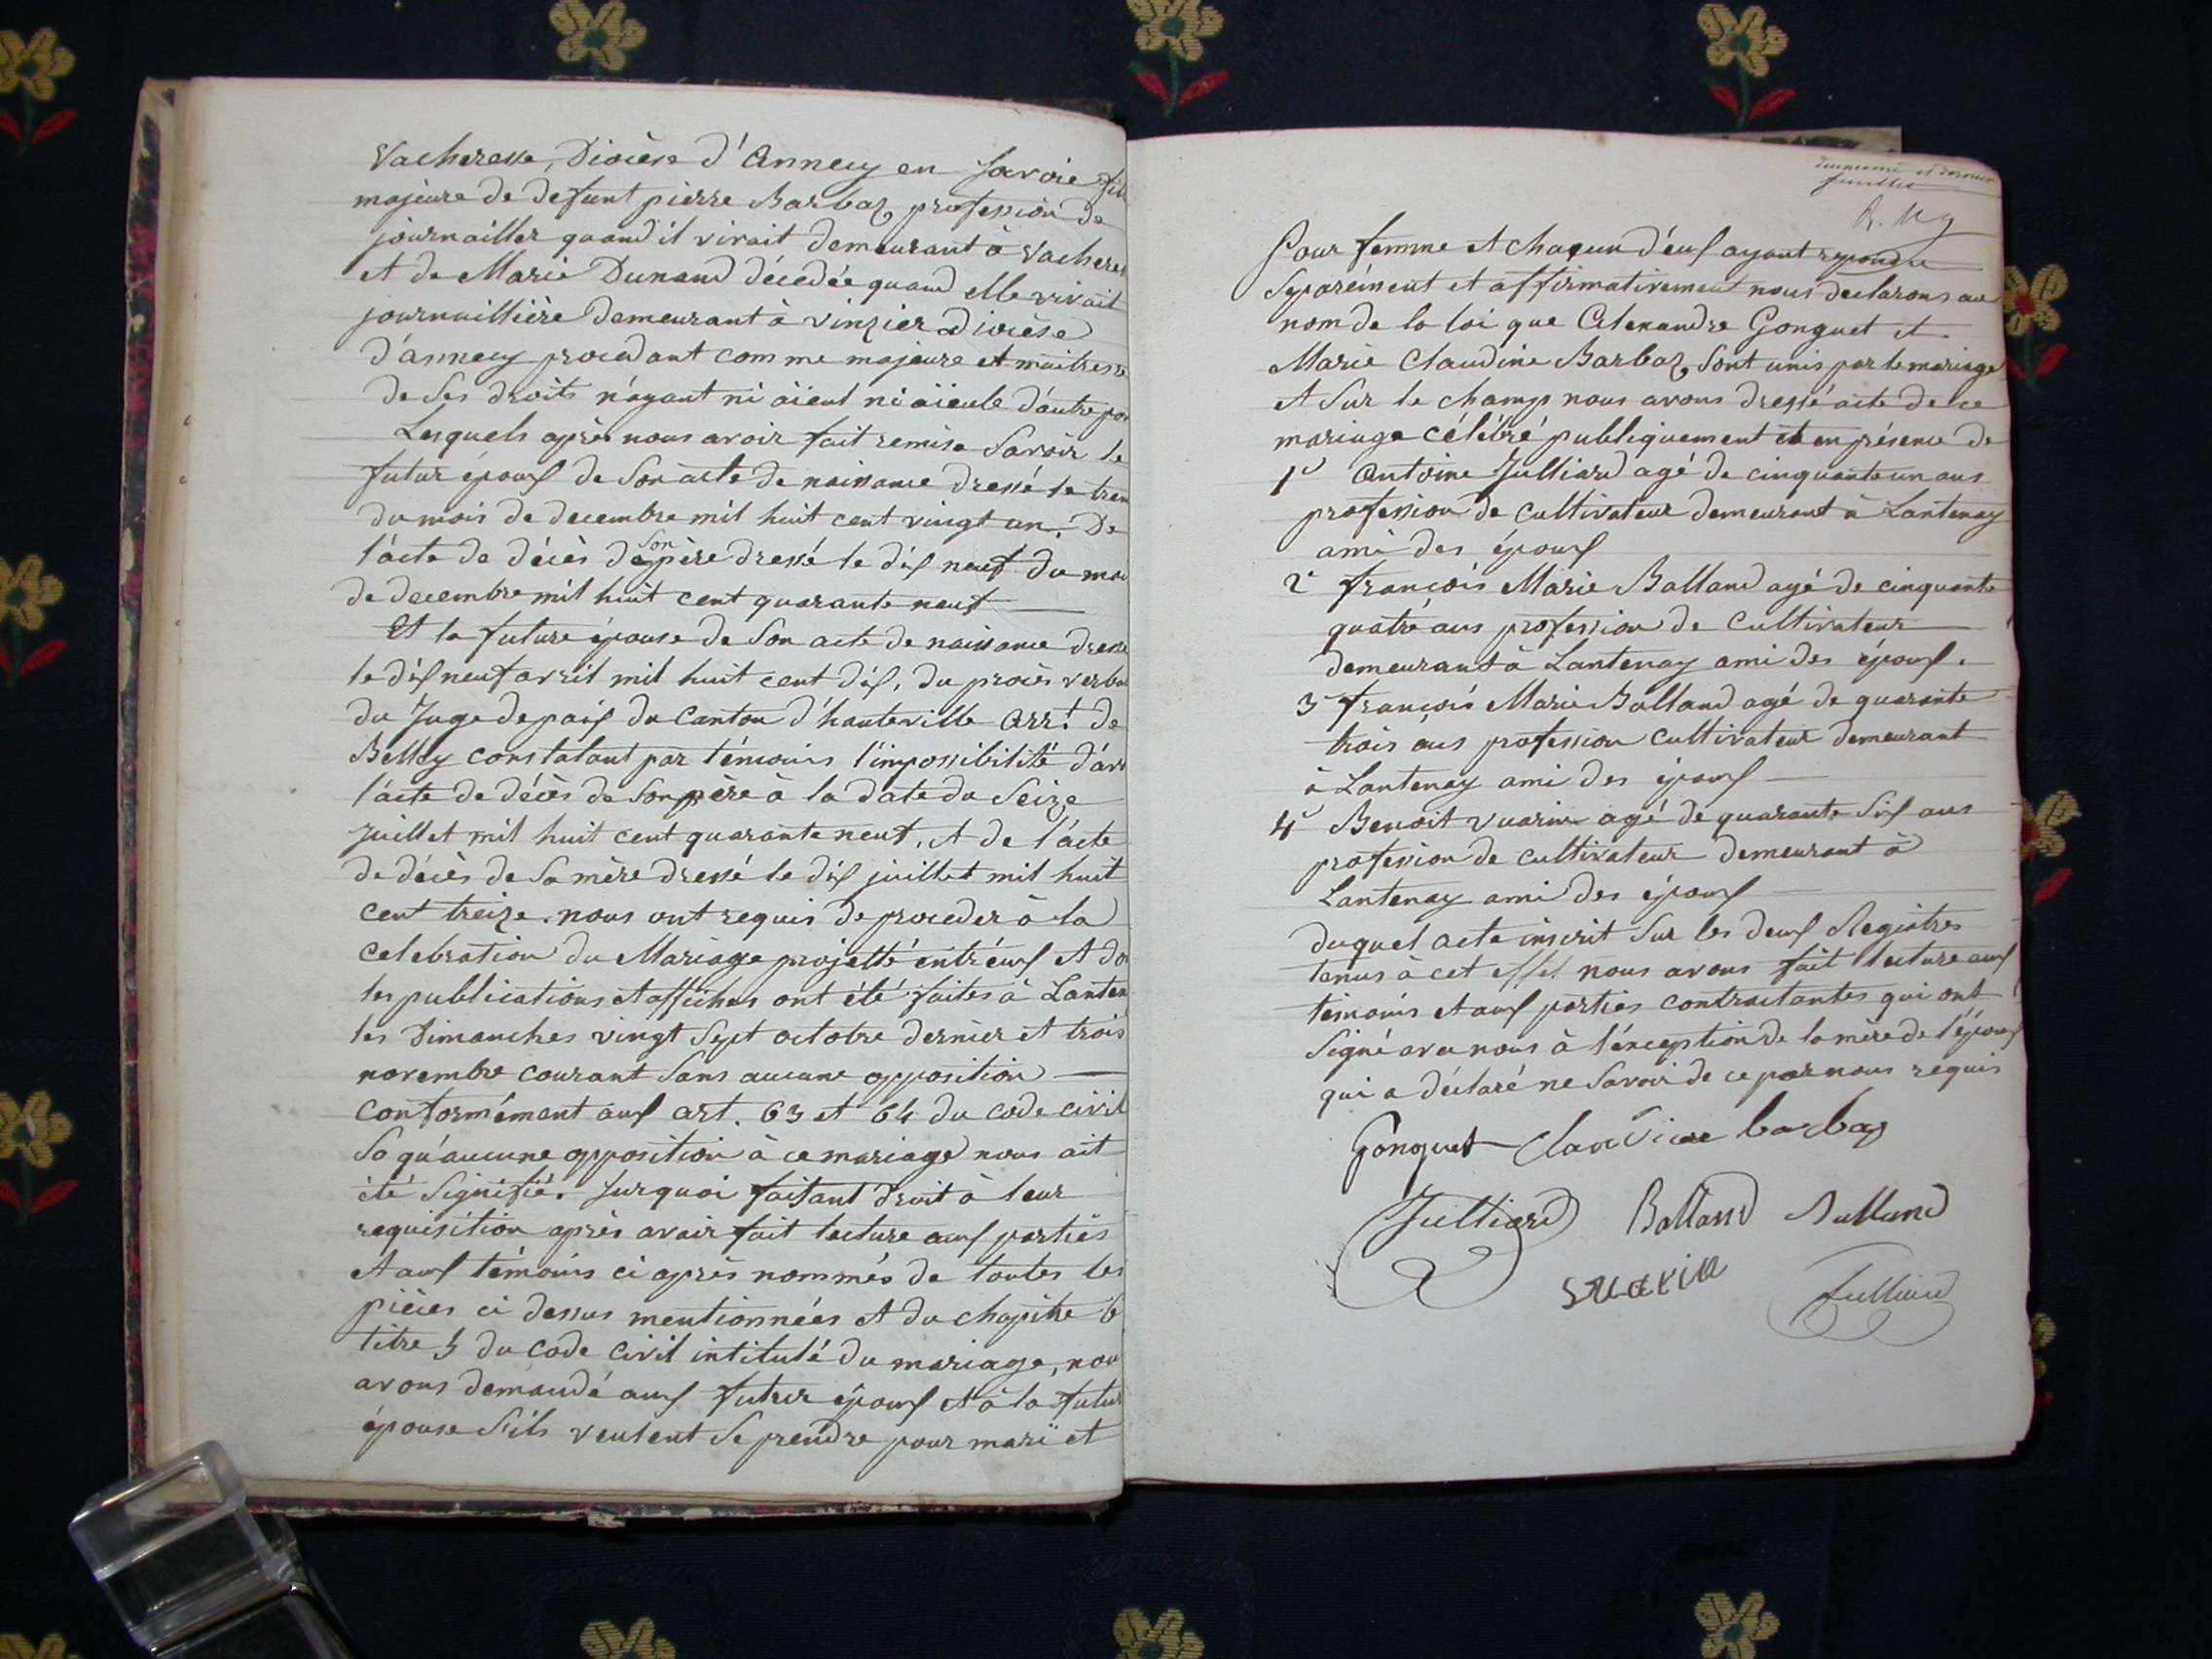 Vacheresse, Diocèse d'Annecy en Savoie fille
majeure de defunt pierre Barbaz, profession de
journaillier quand il vivait demeurant à Vacheres
et de Marie Dunand décedée quand elle vivait
journaillière demeurant à Vinzier Diocèse
d'annecy procedant comme majeure et maitresse
de Ses droits n'ayant ni aïeul ni aïeule d'autre par
Lesquels après nous avoir fait remise Savoir le
futur époux de Son acte de naissance dressé le tren
du mois de decembre mil huit cent vingt un. De
l'acte de décès de Son père dressé le dix neuf du moi
de decembre mil huit cent quarante neuf
Et la future épouse de Son acte de naissance dressé
le dix neuf avril mil huit cent dix, du procès verbal
du Juge de paix du Canton d'hauteville arrt. de
Belley constatant par témoins l'impossibilité d'avo
l'acte de décès de Son père à la date du Seize
Juillet mil huit cent quarante neuf, et de l'acte
de décès de Sa mère dressé le dix juillet mil huit
cent treize. nous ont requis de proceder à la
celebration du Mariage projetté entr'eux et do
les publications et affiches ont été faites à Lanten
les Dimanches vingt Sept octobre dernier et trois
novembre courant Sans aucune opposition
conformément aux art. 63 et 64 du code civil
Sa qu'aucune opposition à ce mariage nous ait
été Signifié. Sur quoi faisant droit à leur
requisition après avoir fait lecture aux parties
et aux témoins ci après nommés de toutes les
pièces ci dessus mentionnées et du chapitre 6
titre 5 du code civil intitulé du mariage, nou
avons demandé aux futur époux et à la futur
épouse S'ils veulent Se prendre pour mari et
feuillet
Pour femme et chacun d'eux ayant repondu
Séparément et affirmativement nous declarons au
nom de la loi que Alexandre Gonguet et
Marie Claudine Barbaz, Sont unis par le mariage
et Sur le champ nous avons dressé acte de ce
mariage célébré publiquement et en présence de
1° Antoine Julliard agé de cinquante un ans
profession de cultivateur demeurant à Lantenay
ami des époux
2° françois Marie Balland agé de cinquante
quatre ans profession de cultivateur
demeurant à Lantenay ami des époux.
3° françois Marie Balland agé de quarante
trois ans profession cultivateur demeurant
à Lantenay ami des époux
4° Benoit Vuarin agé de quarante Six ans
profession de cultivateur demeurant à
Lantenay ami des époux
duquel acte inscrit Sur les deux Registres
tenus à cet effet nous avons fait lecture aux
témoins et aux parties contractantes qui ont
Signé avec nous à l'exception de la mère de l'époux
qui a déclaré ne Savoir de ce par nous requis
Gonguet Claudine barbaz
Julliard Balland Balland
vuarin
Julliard